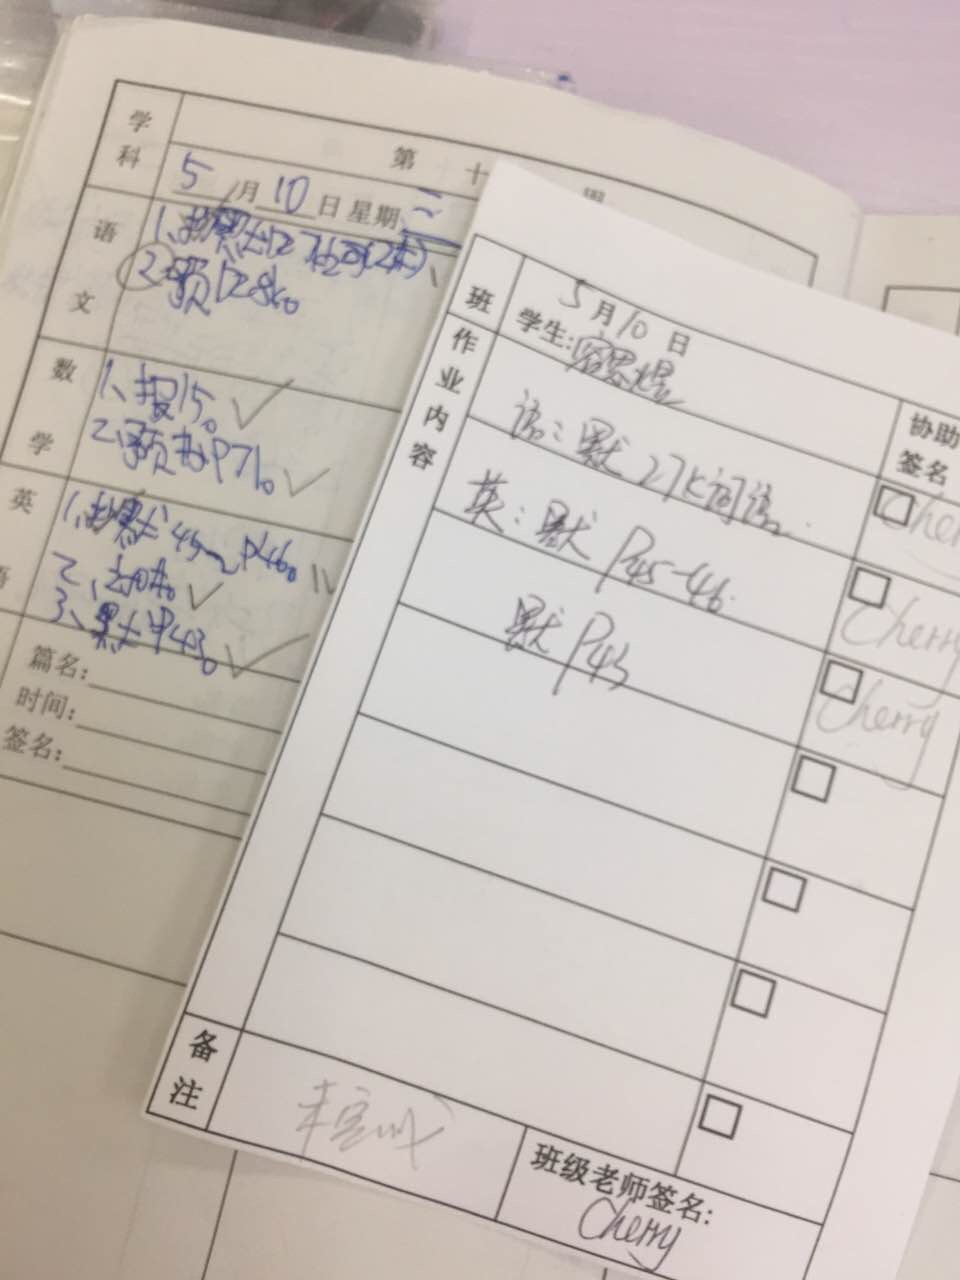 学科
第十
周
5月10日星期三
语文
2、预12.8k。
数学
1、报15。
2、预书P71。
英语
1、抄默45~P46。
2、
3、默P43。
篇名:
时间:
签名:
班
5月10日
学生:
协助签名
作业内容
语:默27k词语。
Cherry
英:默P45-46.
Cherry
默P43
Cherry
备注
未完成
班级老师签名:
Cherry